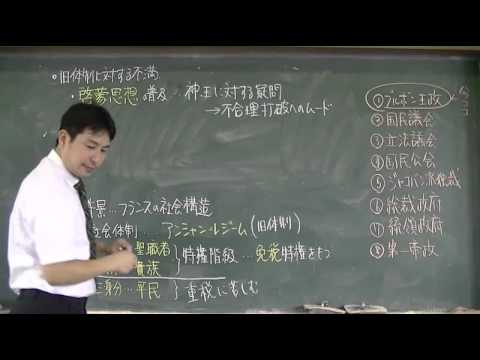 ・旧体制に対する不満
・啓蒙思想の普及 神・王に対する疑問
→不合理打破へのムード
背景…フランスの社会構造
社会体制…アンシャン・レジーム(旧体制)
聖職者
貴族
}特権階級…免税特権をもつ
三身分…平民 }重税に苦しむ
①ブルボン王政
②国民議会
③立法議会
④国民公会
⑤ジャコバン派独裁
⑥総裁政府
⑦統領政府
⑧第一帝政